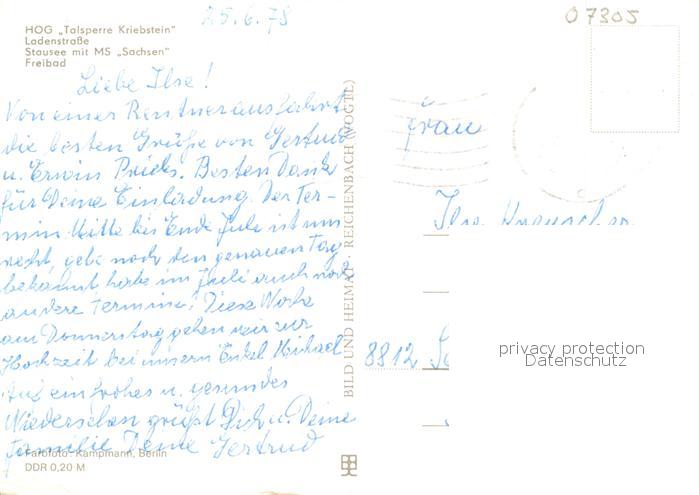 25.6.78
07305
HOG „Talsperre Kriebstein"
Ladenstraße
Stausee mit MS „Sachsen"
Freibad
Liebe Ilse!
Von einer Rentnerausfahrt
die besten Grüße von Gertrud
u. Erwin. Besten Dank
für Deine Einladung. Der Ter-
min Mitte bis Ende Juli ist uns
recht, gebe noch den genauen Tag
bekannt habe im Juli auch noch
andere Termine! Diese Woche
am Donnerstag gehen wir zur
Hochzeit bei unserm Enkel Michael
Auf ein frohes u. gesundes
Wiedersehen grüßt Dich u. Deine
Familie Deine Gertrud
Farbfoto: Kampmann, Berlin
DDR 0,20 M
BILD UND HEIMAT · REICHENBACH (VOGTL)
Frau
Ilse
8812
privacy protection
Datenschutz